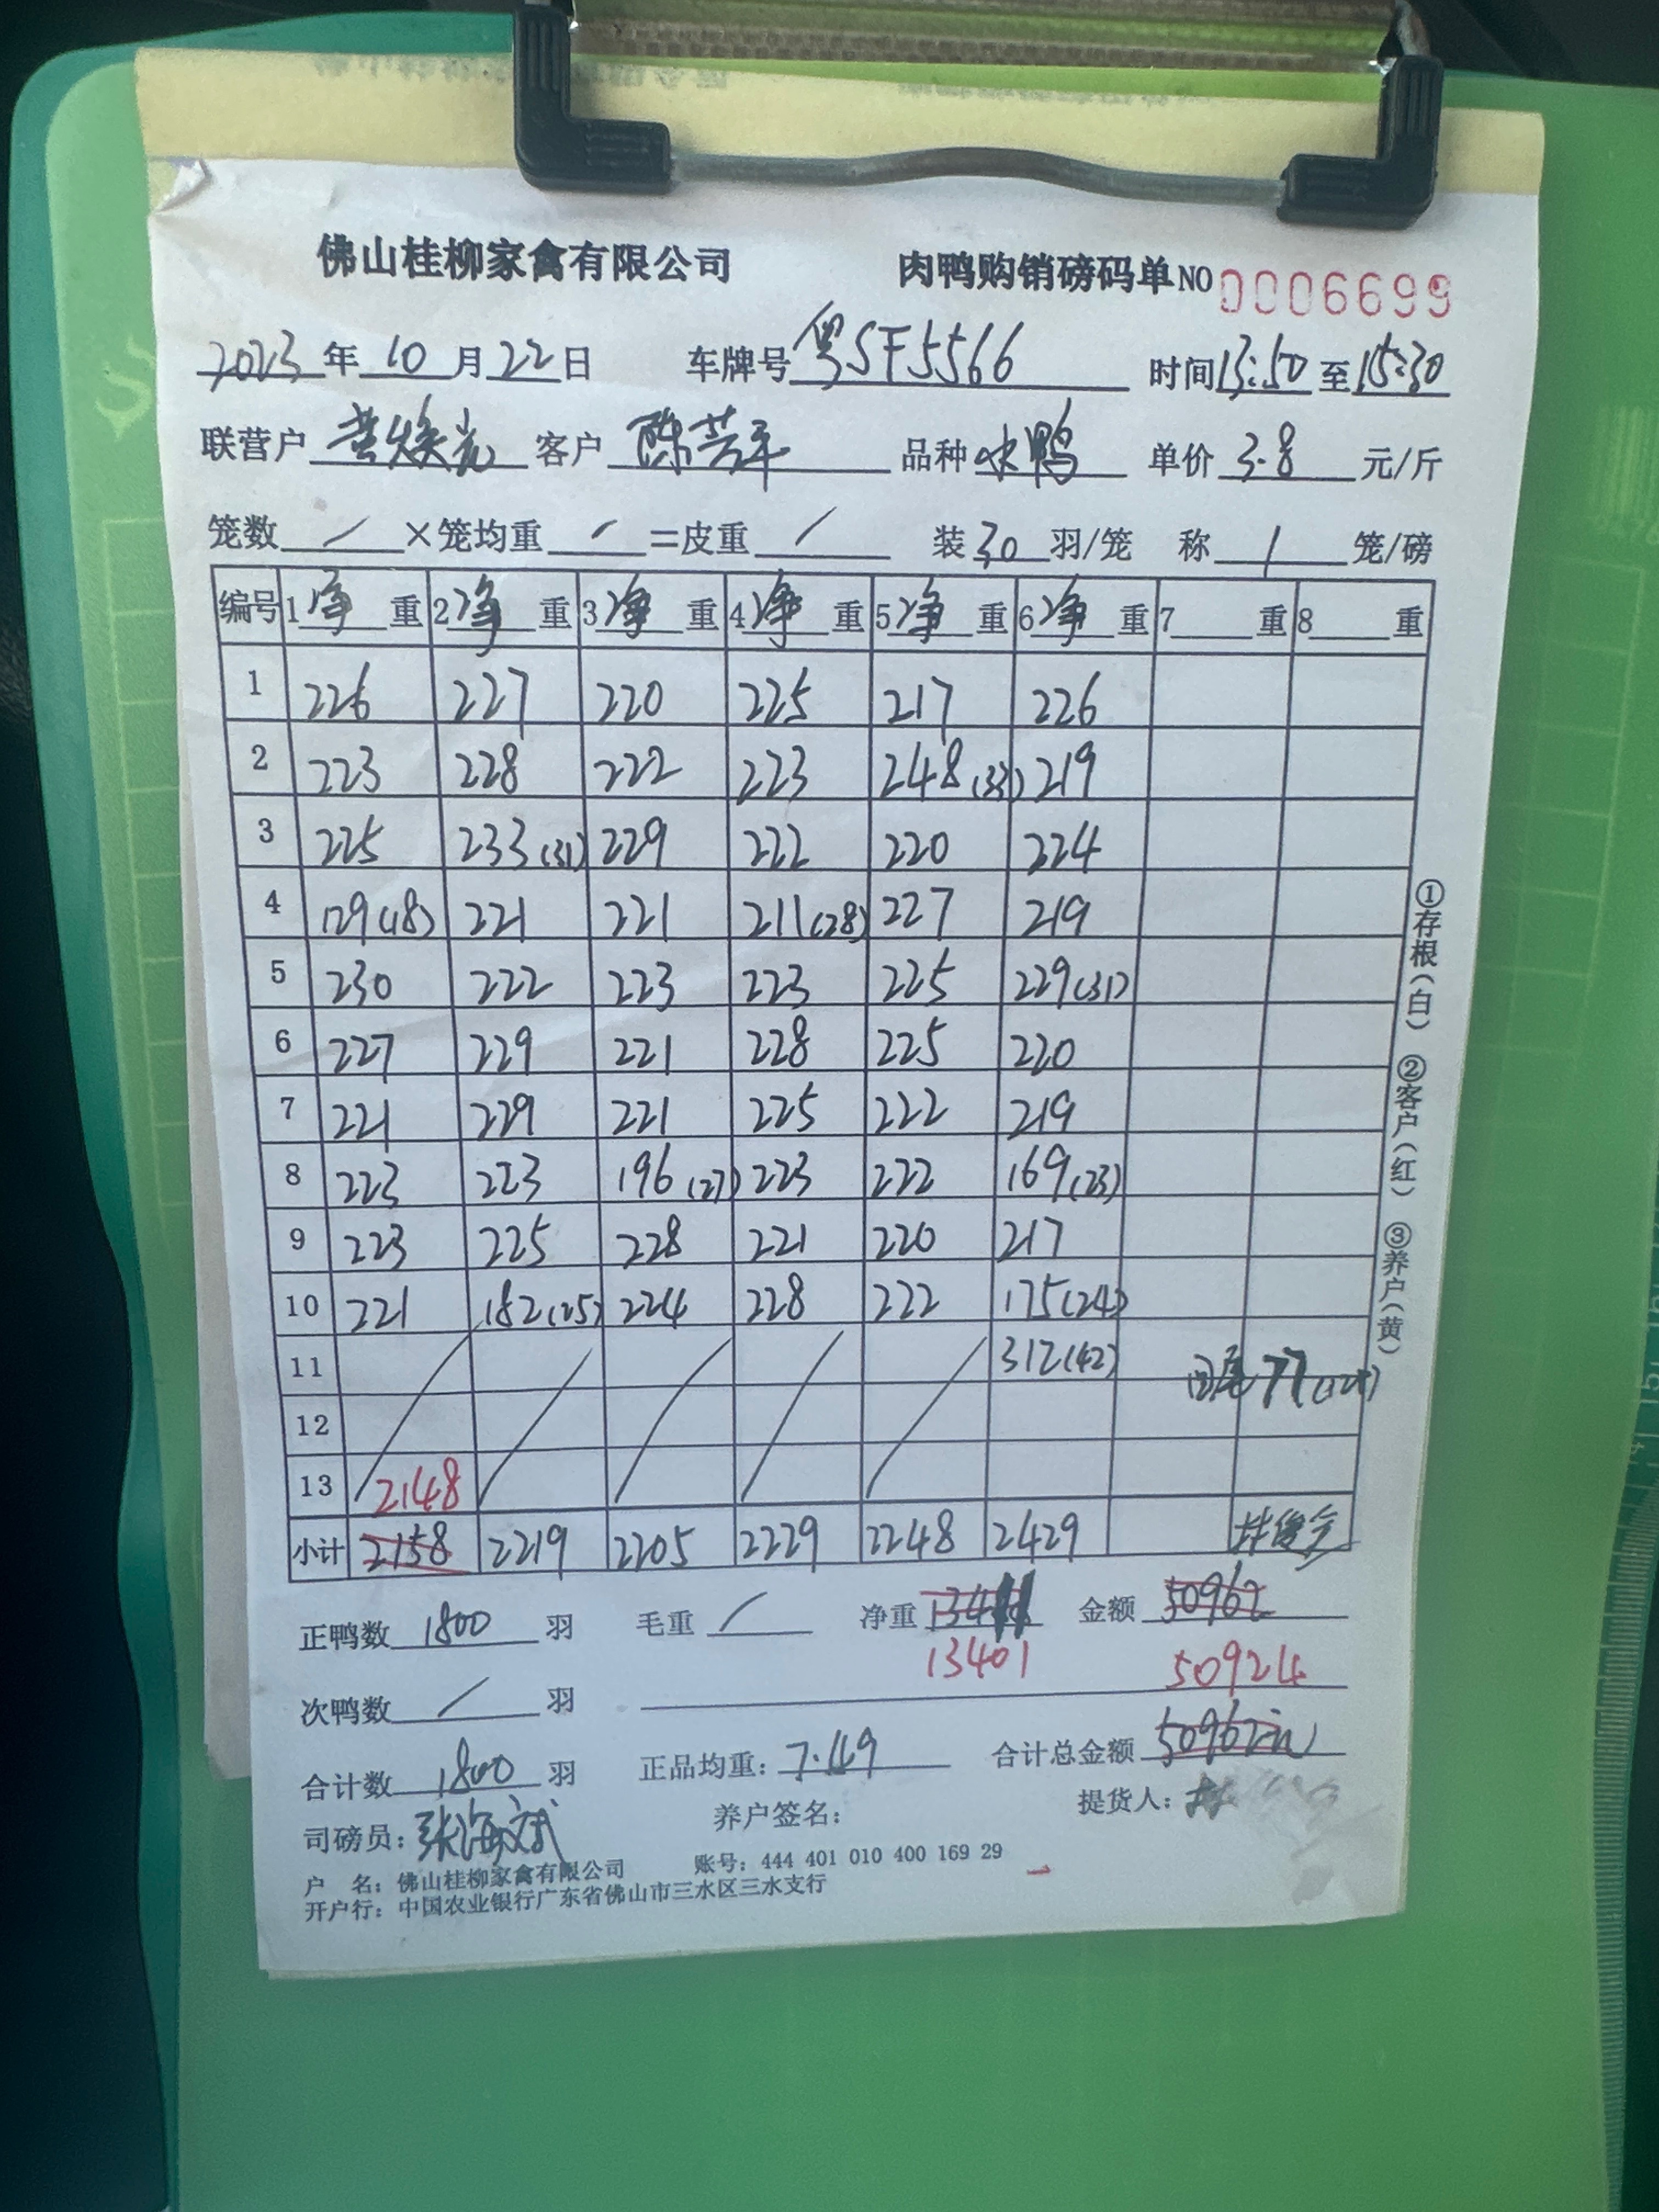 佛山桂柳家禽有限公司 肉鸭购销磅码单 NO 0006699
2023年10月22日 车牌号 粤SF5566 时间 13:50 至 15:30
联营户 黄焕光 客户 陈芸平 品种 水鸭 单价 3.8 元/斤
笼数 / ×笼均重 / =皮重 / 装 30 羽/笼 称 1 笼/磅
编号 1净重 2净重 3净重 4净重 5净重 6净重 7 重 8 重
1 226 227 220 225 217 226
2 223 228 222 223 248(33) 219
3 225 233(31) 229 222 220 224
4 129(18) 221 221 211(28) 227 219
5 230 222 223 223 225 229(31)
6 227 229 221 228 225 220
7 221 229 221 225 222 219
8 223 223 196(27) 223 222 169(23)
9 223 225 228 221 220 217
10 221 182(25) 224 228 222 175(24)
11 312(42) 尾77
12
13 2148
小计 2158 2219 2205 2229 2248 2429
正鸭数 1800 羽 毛重 / 净重 134 金额 50962
13401 50924
次鸭数 / 羽
合计数 1800 羽 正品均重: 7.449 合计总金额 50962元
司磅员: 张海斌 养户签名: 提货人: 林
户 名: 佛山桂柳家禽有限公司 账号: 444 401 010 400 169 29
开户行: 中国农业银行广东省佛山市三水区三水支行
①存根(白) ②客户(红) ③养户(黄)